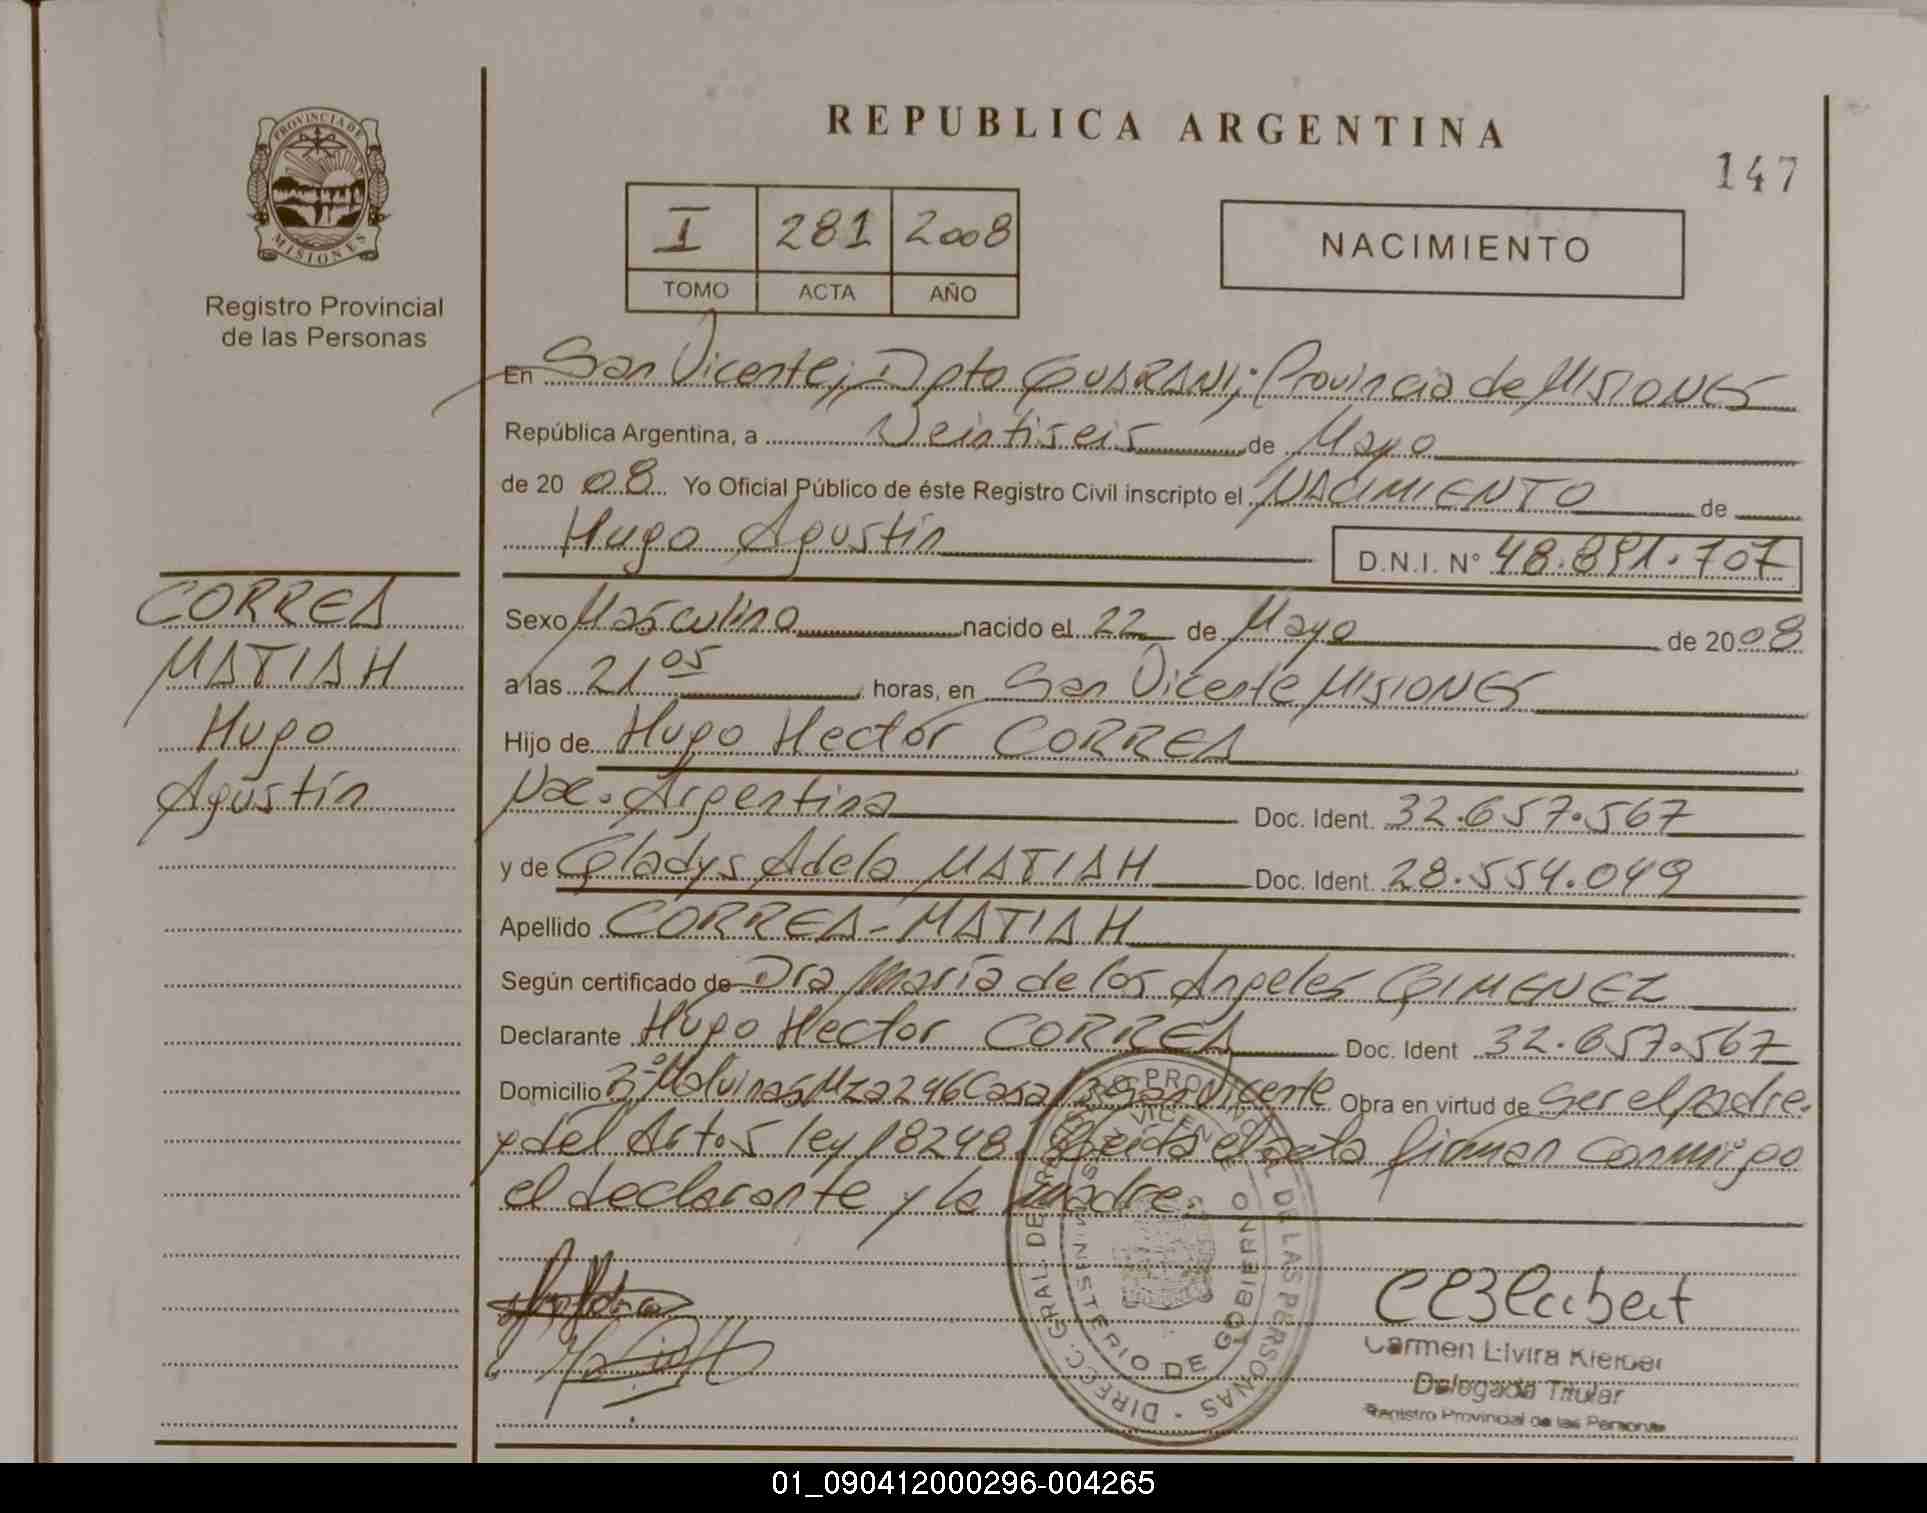 PROVINCIA DE
MISIONES
Registro Provincial
de las Personas
REPUBLICA ARGENTINA
147
I 281 2008
TOMO ACTA AÑO
NACIMIENTO
En San Vicente, Dpto GUARANI; Provincia de MISIONES
República Argentina, a Veintiseis de Mayo
de 20 08 Yo Oficial Público de éste Registro Civil inscripto el NACIMIENTO de
Hugo Agustín D.N.I. N° 48.891.707
CORREA
MATIAH
Hugo
Agustín
Sexo Masculino nacido el 22 de Mayo de 2008
a las 21 05 horas, en San Vicente MISIONES
Hijo de Hugo Hector CORREA
Nac. Argentina Doc. Ident. 32.657.567
y de Gladys Adela MATIAH Doc. Ident. 28.554.049
Apellido CORREA-MATIAH
Según certificado de Dra María de los Angeles GIMENEZ
Declarante Hugo Hector CORREA Doc. Ident 32.657.567
Domicilio Bº Malvinas Mza 246 Casa San Vicente Obra en virtud de Ser el padre.
y del Art. 5 ley 18248. Leida el acta firman conmigo
el declarante y la madre.
DIRECC. GRAL. DEL REGISTRO PROVINCIAL DE LAS PERSONAS
MINISTERIO DE GOBIERNO
SAN VICENTE
Carmen Elvira Kleiber
Delegada Titular
Registro Provincial de las Personas
01_090412000296-004265